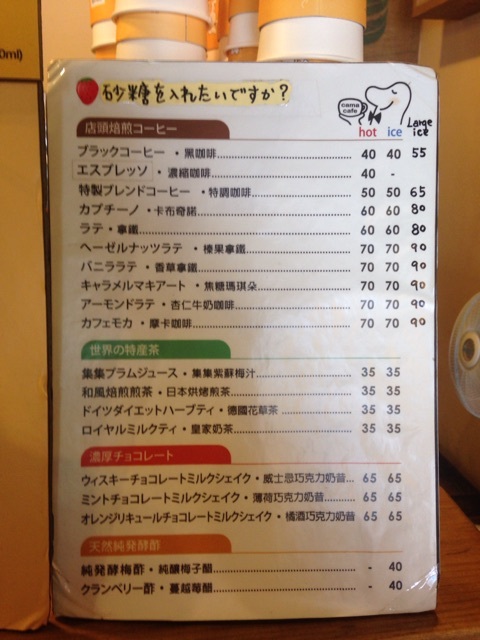 0ml)
砂糖を入れたいですか?
cama café
店頭焙煎コーヒー hot ice Large ice
ブラックコーヒー・黑咖啡 40 40 55
エスプレッソ・濃縮咖啡 40 -
特製ブレンドコーヒー・特調咖啡 50 50 65
カプチーノ・卡布奇諾 60 60 80
ラテ・拿鐵 60 60 80
ヘーゼルナッツラテ・榛果拿鐵 70 70 90
バニララテ・香草拿鐵 70 70 90
キャラメルマキアート・焦糖瑪琪朵 70 70 90
アーモンドラテ・杏仁牛奶咖啡 70 70 90
カフェモカ・摩卡咖啡 70 70 90
世界の特産茶
集集プラムジュース・集集紫蘇梅汁 35 35
和風焙煎煎茶・日本烘烤煎茶 35 35
ドイツダイエットハーブティ・德國花草茶 35 35
ロイヤルミルクティ・皇家奶茶 35 35
濃厚チョコレート
ウィスキーチョコレートミルクシェイク・威士忌巧克力奶昔 65 65
ミントチョコレートミルクシェイク・薄荷巧克力奶昔 65 65
オレンジリキュールチョコレートミルクシェイク・橘酒巧克力奶昔 65 65
天然純発酵酢
純発酵梅酢・純釀梅子醋 - 40
クランベリー酢・蔓越莓醋 - 40